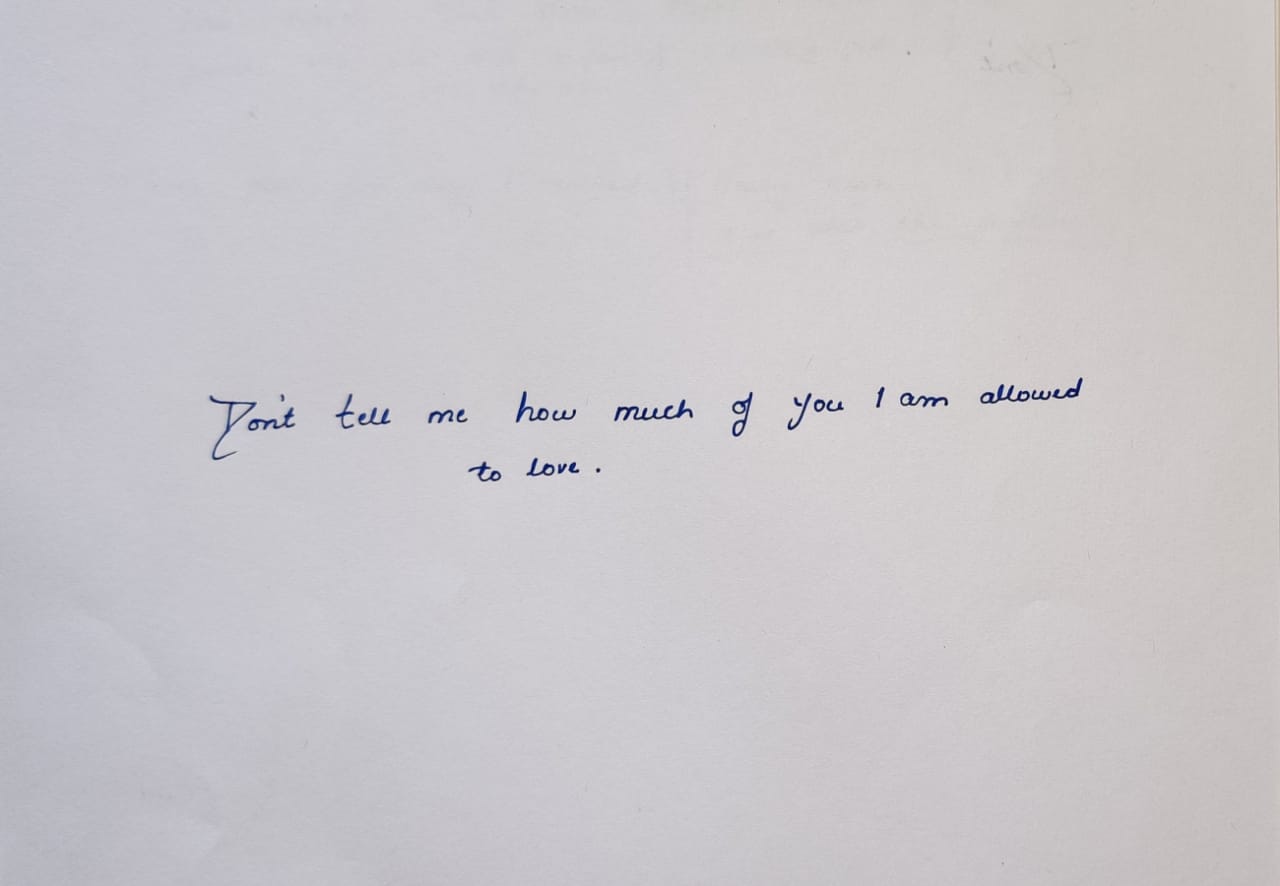 Don't tell me how much of you I am allowed
to love.